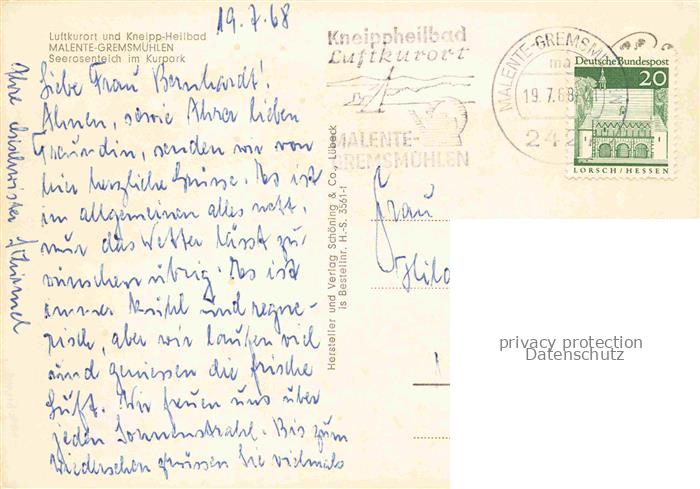 19.7.68
Luftkurort und Kneipp-Heilbad
MALENTE-GREMSMÜHLEN
Seerosenteich im Kurpark
Liebe Frau Bernhardt!
Ihnen, sowie Ihrer lieben
Freundin, senden wir von
hier herzliche Grüsse. Es ist
im allgemeinen alles nett,
nur das Wetter lässt zu
wünschen übrig. Es ist
immer kühl und regne-
risch, aber wir laufen viel
und geniessen die frische
Luft. Wir freuen uns über
jeden Sonnenstrahl. Bis zum
Wiedersehen grüssen Sie vielmals
Ihre
Hersteller und Verlag Schöning & Co., Lübeck
is Bestellnr. H.-S. 3561-f
Kneippheilbad
Luftkurort
MALENTE-
GREMSMÜHLEN
MALENTE-GREMSM
19.7.68
242
Deutsche Bundespost
20
LORSCH/HESSEN
Frau
Hild
privacy protection
Datenschutz